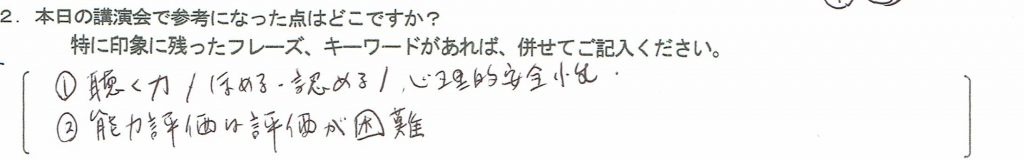 2. 本日の講演会で参考になった点はどこですか?
特に印象に残ったフレーズ、キーワードがあれば、併せてご記入ください。
① 聴く力 / ほめる・認める / 心理的安全性
② 能力評価は評価が困難